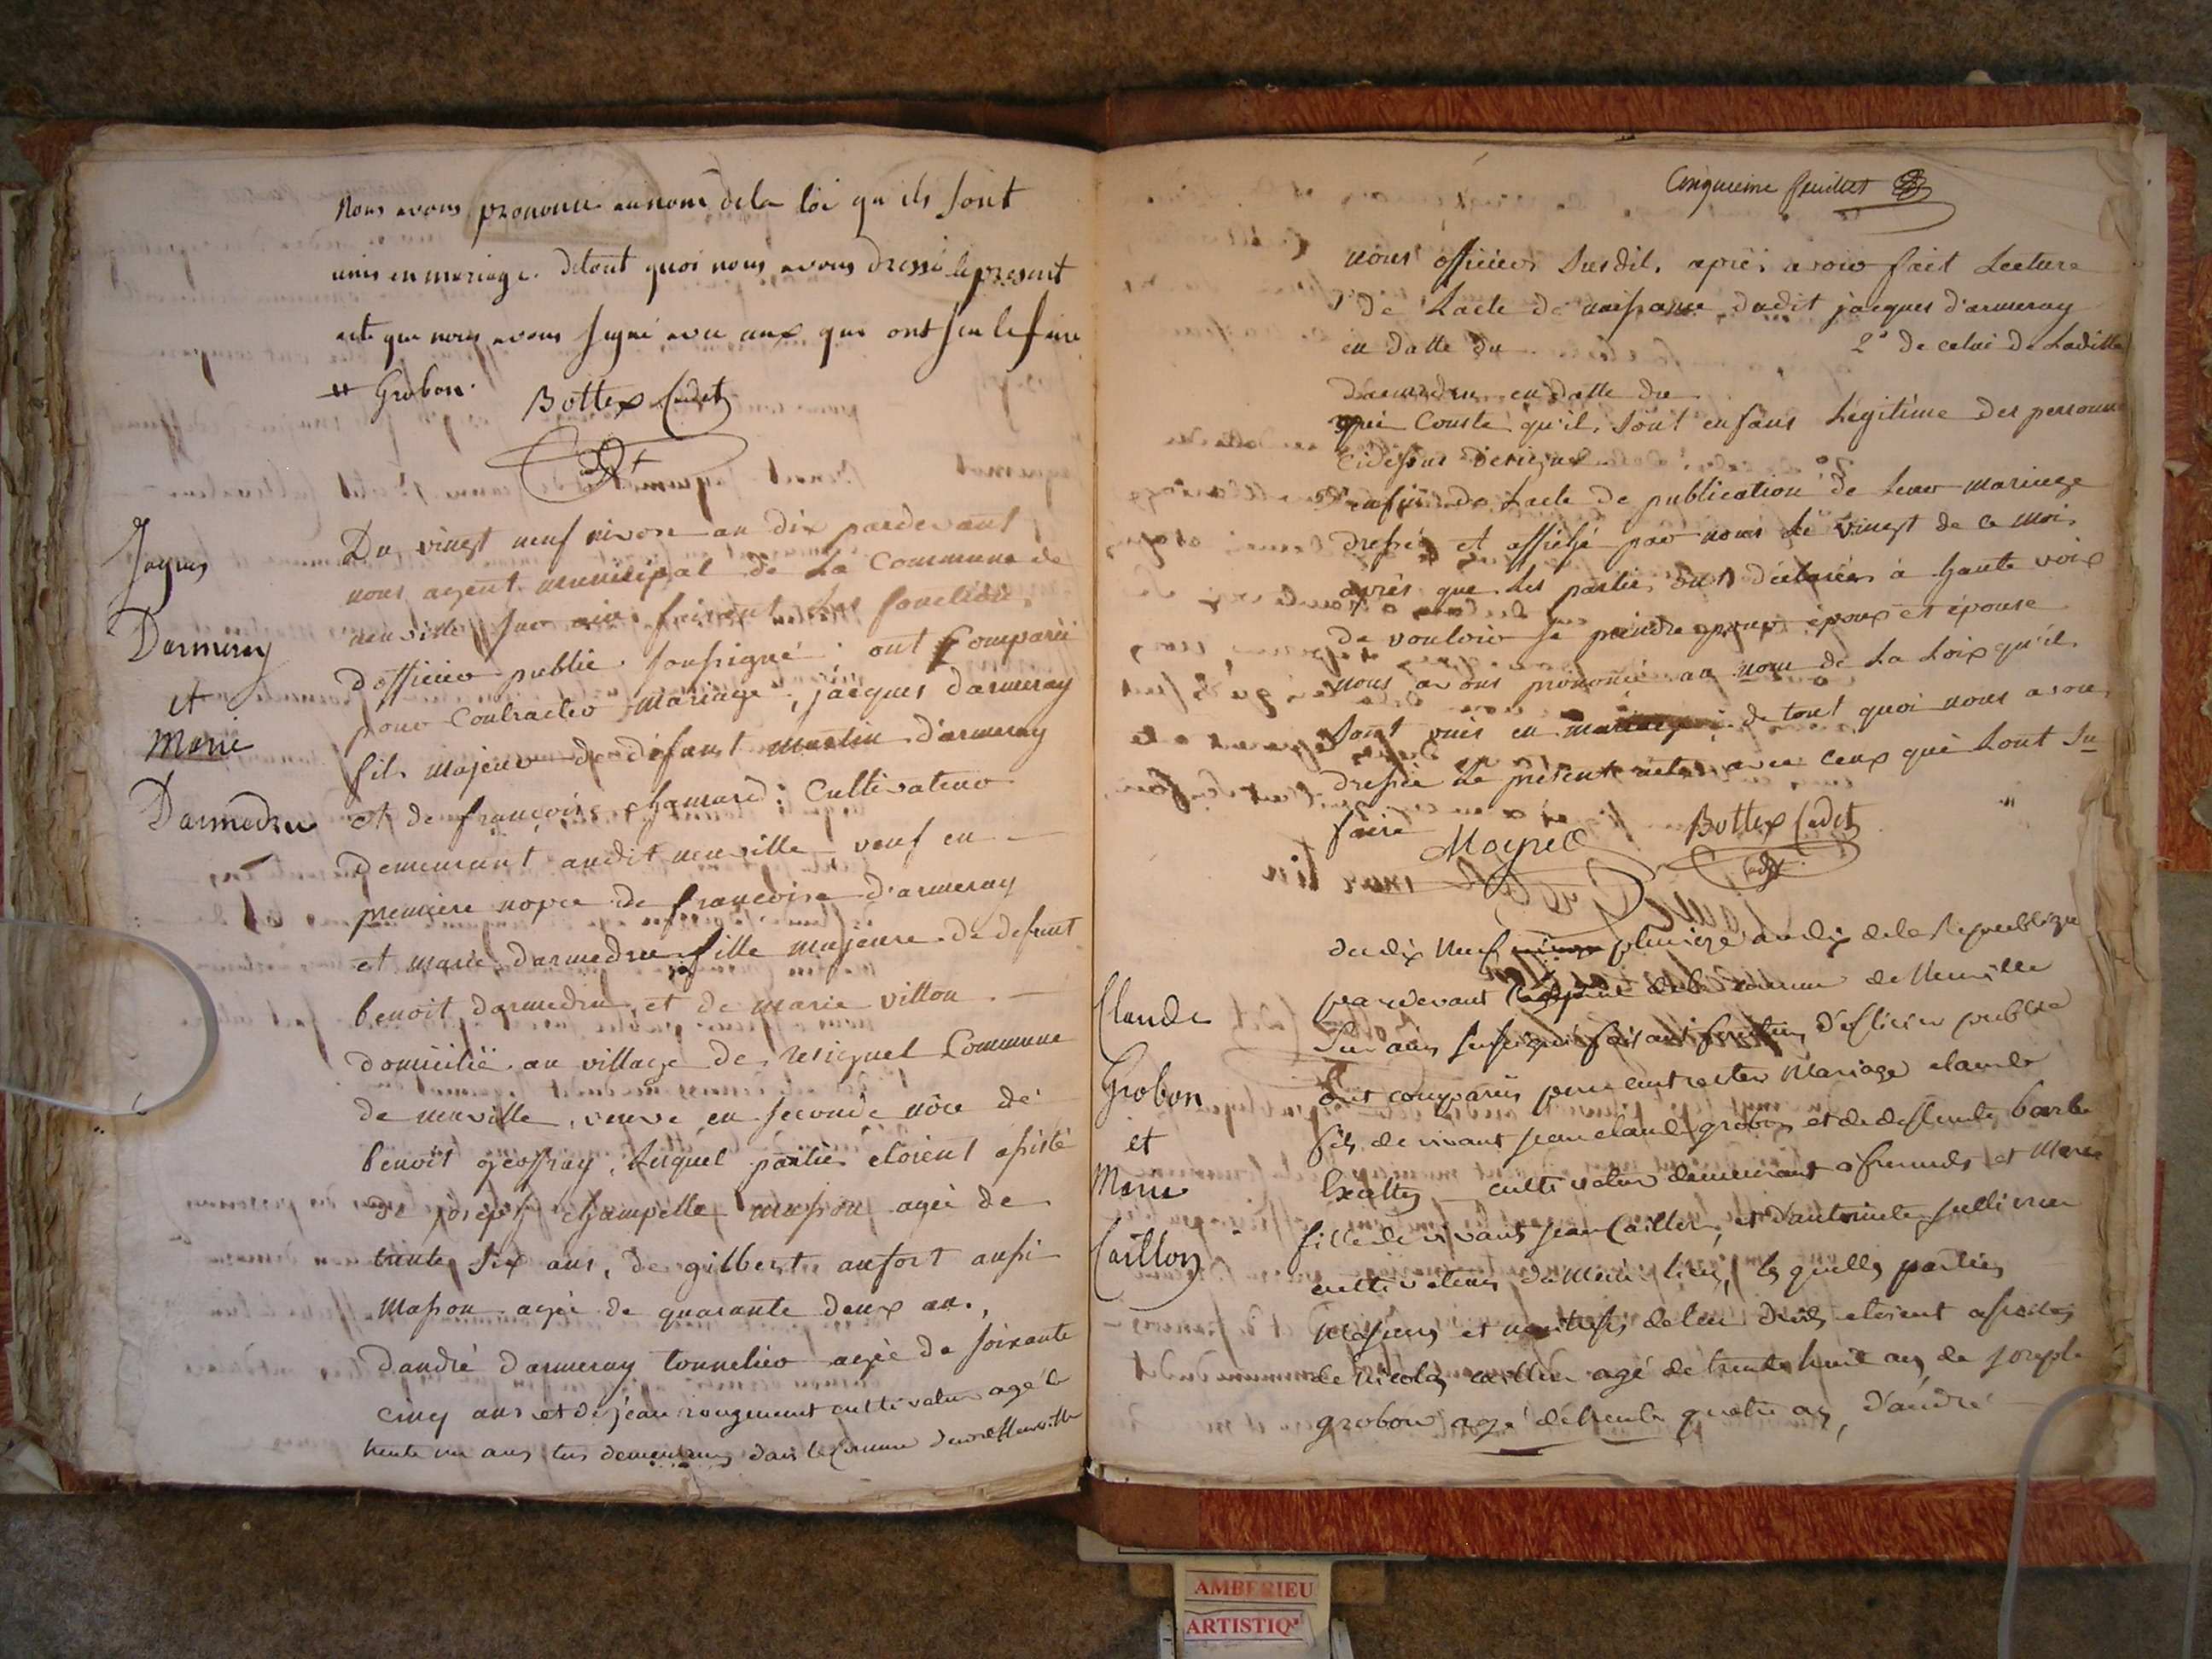 Nous avons prononcé au nom de la loi qu'ils sont
unis en mariage. de tout quoi nous avons dressé le present
acte que nous avons signé avec ceux qui ont scu le faire
Grobon. Bottex Cadet
Cadet
Jaques
Darmeray
et
Marie
Darmedru
Du vingt neuf nivose an dix pardevant
nous agent municipal de La Commune de
neuville sur ain faisant Les fonctions
d'officier public soussigné; ont Comparu
pour Contracter mariage, jacques d'armeray
fils majeur de défunt martin d'armeray
et de françoise chanard; Cultivateur
demeurant audit neuville veuf en
premiere nopce de françoise d'armeray
et marie darmedru fille majeure de defunt
benoit darmedru, et de marie villon
domicilié au village de resignel Commune
de neuville, veuve en seconde nôce de
benoit geoffray, Lesquel parties etoient assisté
de joseph champelle masson agée de
trente six ans, de gilbert aufort aussi
Masson agée de quarante deux an.,
d'andré d'armeray tonnelier agée de soixante
cinq ans et de jean rougemont cultivateur agé de
trente un ans tous demeurans dans la Commune de Neuville
Cinquieme feuillet
nous officier susdit, après avoir fait Lecture
1º de Lacte de naissance dudit jacques d'armeray
en datte du 2º de celui de Laditte
darmedru en datte du
qui Conste qu'il. sont enfans Légitime des personne
cidessus designé 3º
enfin de Lacte de publication de Leur mariage
dressé et affiché par nous Le vingt de ce mois
après que Les parties ont déclarée à haute voix
de vouloir se prendre pour époux et épouse
nous avons prononcé au nom de La Loix qu'il.
sont unis en mariage; de tout quoi nous avons
dressée Le présent acte avec ceux qui Lont su
faire Moyret Bottex Cadet
Cadet
Claude
Grobon
et
Marie
Caillon
du dix Neuf pluviose an dix de la Republique
par devant l'agent de la Commune de Neuville
Sur ain soussigné faisant fonction d'officier public
Ont comparus pour contracter Mariage claude
fils de vivant jean claude grobon et de deffunte barbe
cultivateur demeurant a fromente et Marie
fille de vivant jean Caillon, et d'antoinette
cultivateur du Meme lieu, les quelles parties
Majeurs et maitresses de leur droits etoient assistées
de Nicolas caillon agé de trente huit ans, de joseph
grobon agé de trente quatre ans, d'andré
AMBERIEU
ARTISTIQ